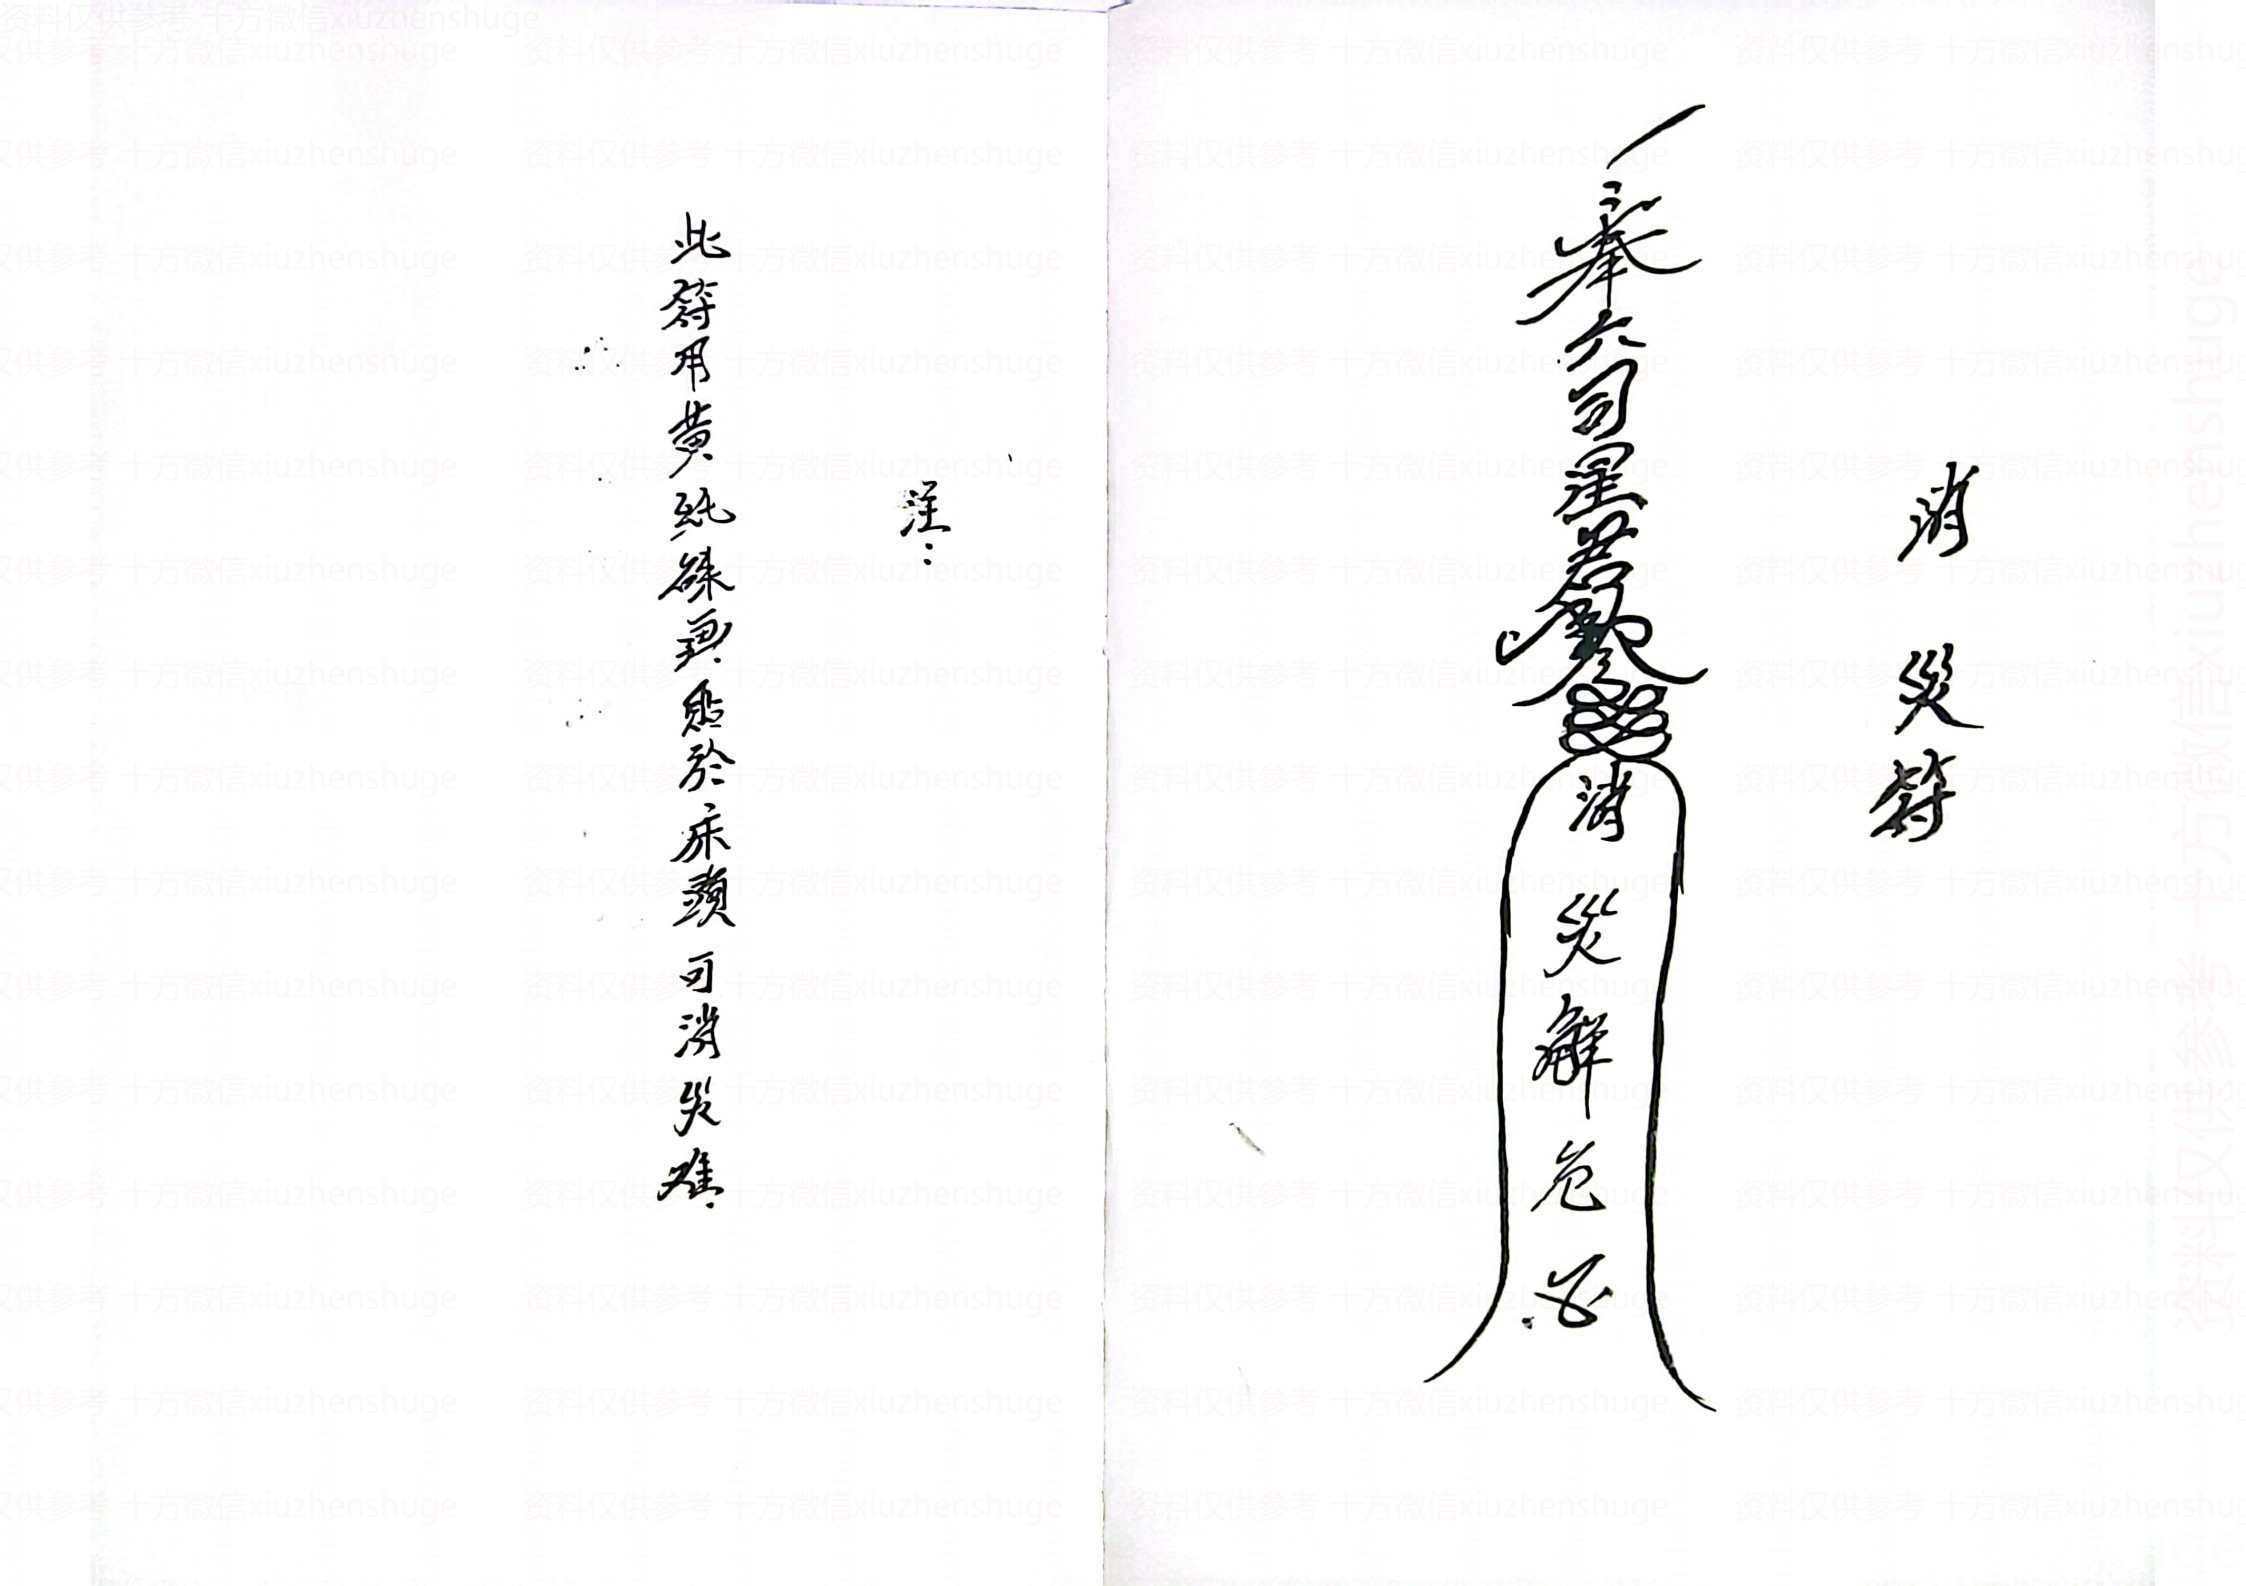 消災符
奉六司星君
消災解危
注:
此符用黃紙硃画貼於床頭可消災难.
资料仅供参考 十方微信xiuzhenshuge